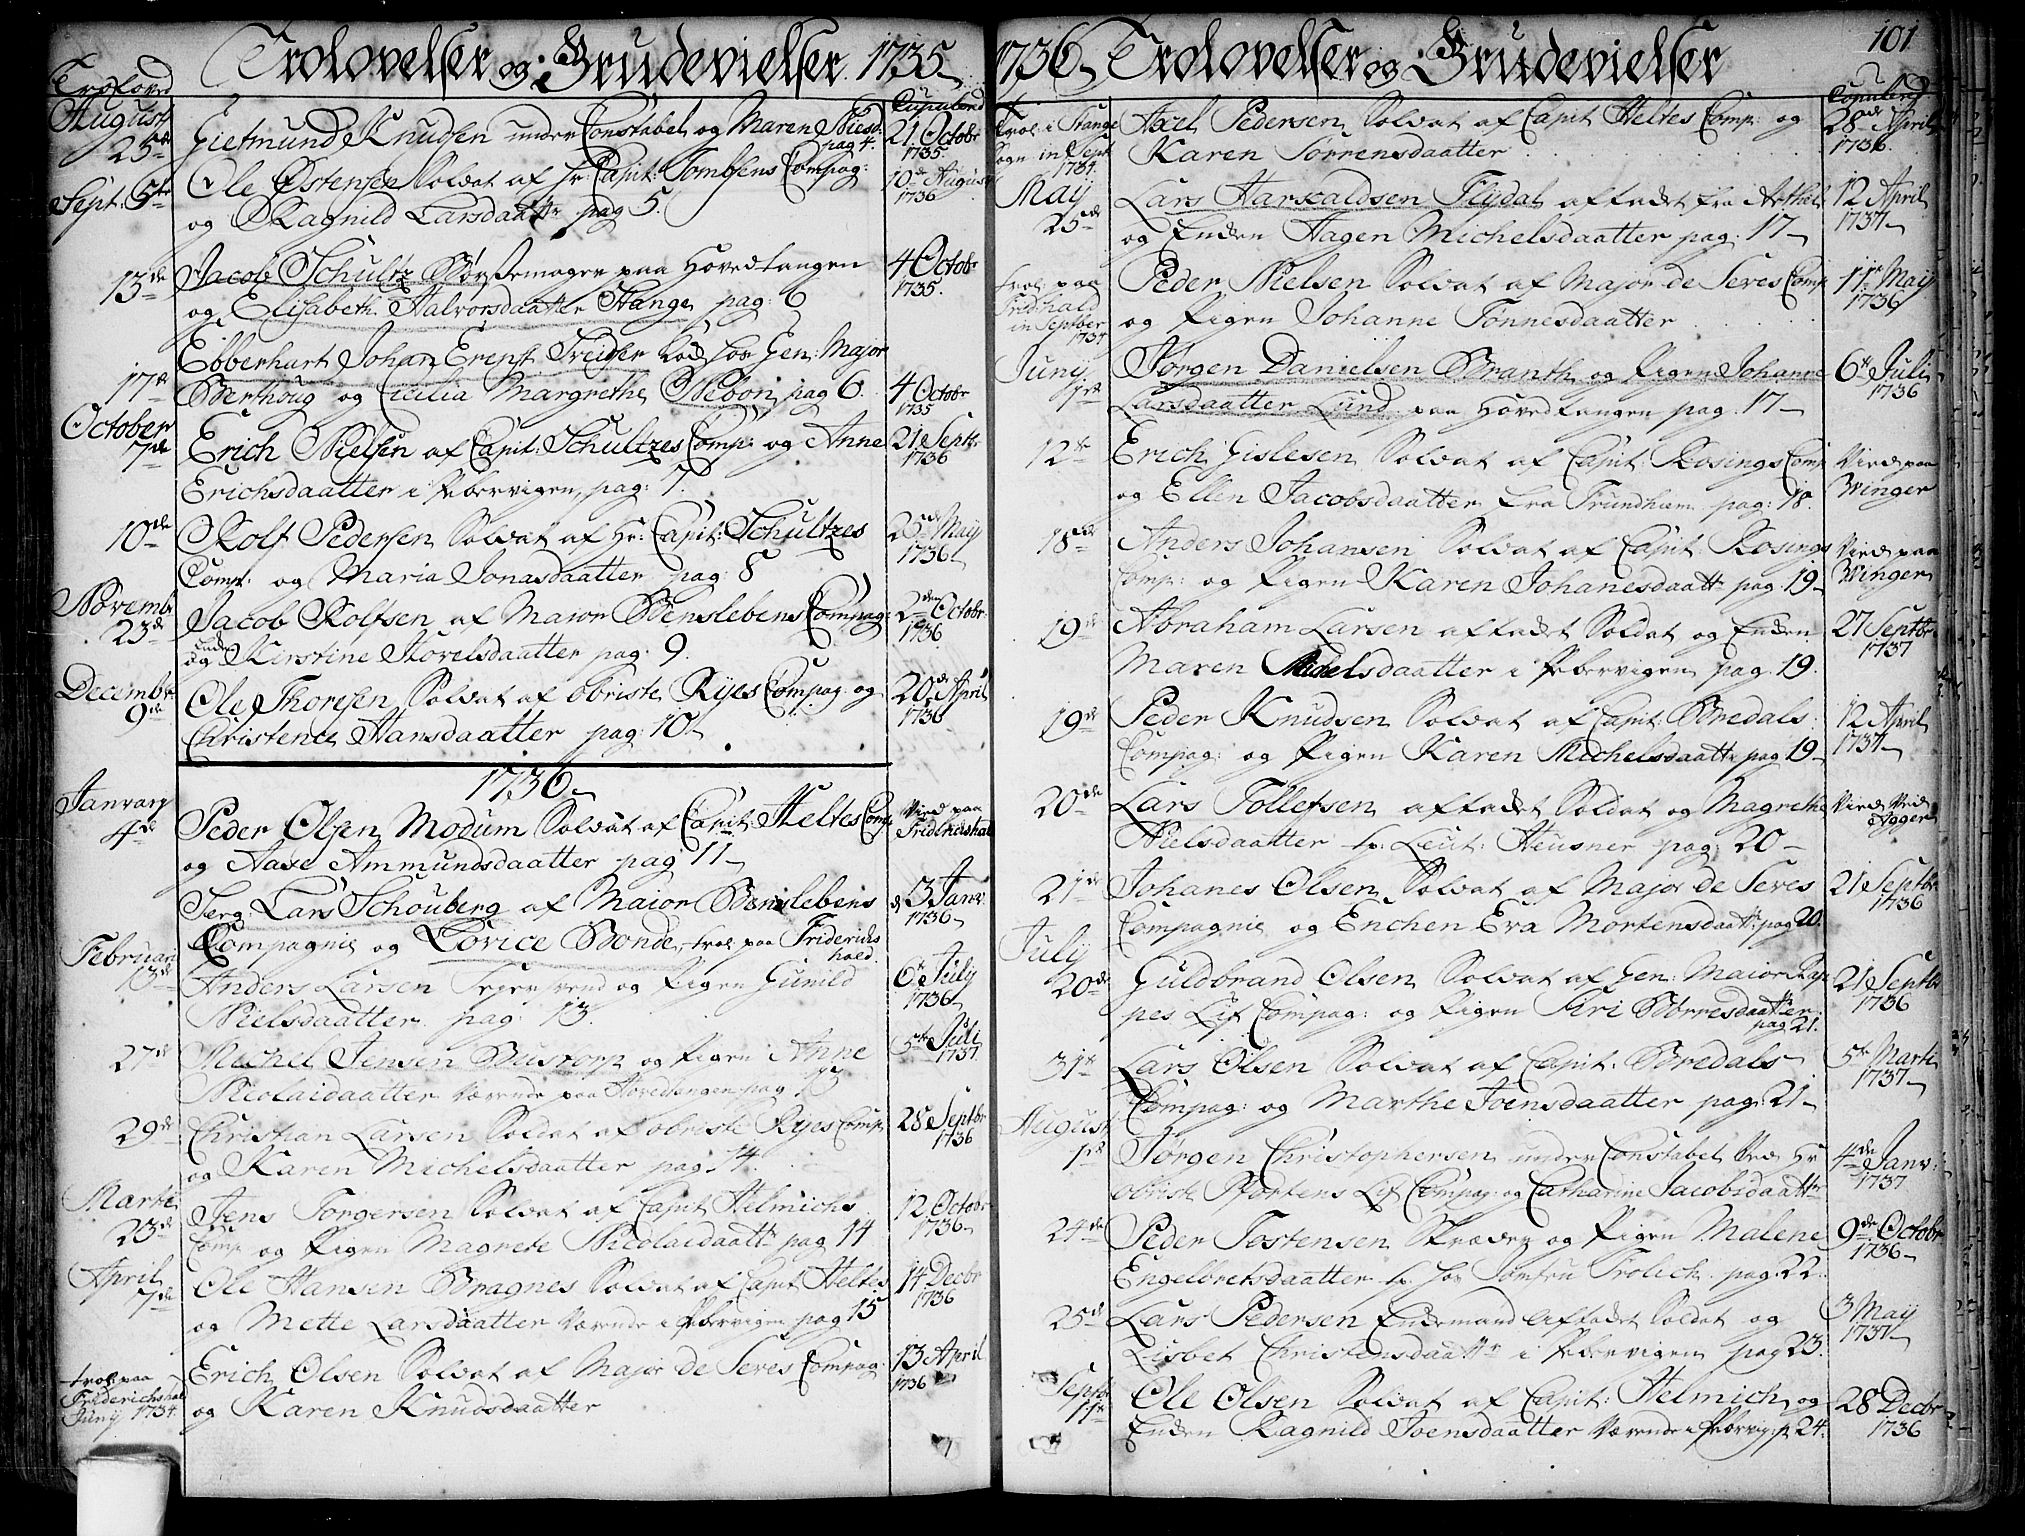 Trolovelser og Brudevielser 1735
Troloved
Copulered
August 25de
Gietmund Knudsen under Constabel og Maren Niesd. pag 4.
21 Octobr 1735.
Sept: 5te
Ole Østensen Soldat af Hr: Capit: Tombsens Compag:
10de August 1736
og Ragnild Larsdaatter pag 5.
13de
Jacob Schultz Børssemager paa Hovedtangen
4 Octobr 1735.
og Elisabeth Halvorsdaatter Stange pag: 6
Ebberhart Johan Ernst Treider hos Gen: Major
17de
Berthoug og Cecilia Margrethe Nebon pag 6.
4 Octobr 1735
October 7de
Erich Nielsen af Capit: Schultzes Comp: og Anne
21 Septr 1736
Erichsdaatter i Pebervigen, pag: 7.
10de
Rolf Pedersen Soldat af Hr: Capit: Schultzes
25de Maij 1736
Comp: og Maria Jonasdaatter pag: 8
Novemb. 23de
Jacob Rolfsen af Maior Benslebens Compag:
2den Octobr. 1736.
og Enken Kirstine Storelsdaatter pag: 9.
Decembr. 9de
Ole Thoresen Soldat af Obriste Ryes Compag: og
20de April 1736
Christence Hansdaatter pag: 10
1736
Januarij 4de
Peder Olsen Modum Soldat af Capit Heltes Comp
Vied paa Fridrichshal
og Aase Ammundsdaatter pag 11
Serg. Lars Schouberg af Maior Benslebens
d 3 Janv. 1736
Compagnie og Lovice Bonde, trol. paa Friderichs hald.
Februari 13de
Anders Larsen Svend og Pigen Gunild
6te July 1736
Nielsdaatter pag: 13.
27de
Michel Jensen Bustrop og Pigen Anne
5te Juli 1737.
Nicolaidaatter Værende paa Hovedtangen pag 13
29de
Christian Larsen Soldat af Obriste Ryes Comp
28 Septbr 1736
og Karen Michelsdaatter pag. 14.
Marti 23de
Jens Torgersen Soldat af Capit Helmichs
12 Octobr 1736
Comp og Pigen Magnete Nicolaidaattr pag 14
April 7de
Ole Hansen Bragnes Soldat af Capit Heltes
14 Decbr 1736
og Mette Larsdaatter Værende i Pebervigen pag 15
trol. paa Friderichshal Junij 1734.
Erich Olsen Soldat af Major de Seres Compag:
13 April 1736
og Karen Knudsdaatter
1736 Trolovelser og Brudevielser
101
Copulered
Trol: i Stange Sogn in Sept 1734.
Axel Pedersen Soldat af Capit Heltes Comp: og
28de April 1736
Karen Sørrensdaatter
Maij 25de
Lars Harraldsen Flydal aftadet fra Arthel
12 April 1737
og Enken Aagen Michelsdaatter pag: 17
trol. paa Fridhald in Septber 1734
Peder Nielsen Soldat af Major de Seres Comp
11te Maij 1736
og Pigen Johanne Tønnesdaatter
Junij 1ste
Jørgen Danielsen Branth og Pigen Johanne
6te Juli 1736
Larsdaatter Lund paa Hovedtangen pag: 17
12te
Erich Gislesen Soldat af Capit: Rosings Comp
Vied paa Winger
og Ellen Jacobsdaatter fra Trundhiem pag: 18.
18de
Anders Johansen Soldat af Capit: Rosings
Vied paa Winger
Comp: og Pigen Karen Johanesdaattr pag: 19
19de
Abraham Larsen aftadet Soldat og Enken
27 Septbr 1737
Maren Michelsdaatter i Pebervigen pag: 19.
19de
Peder Knudsen Soldat af Capit: Bredals
12 April 1737
Compag: og Pigen Karen Michelsdaattr pag 19
20de
Lars Tollefsen aftadet Soldat og Magrethe
Vied Ved Agger
Nielsdaatter hr: Leut: Heusner pag: 20
21de
Johanes Olsen Soldat af Major de Seres
21 Septbr 1736
Compagnie og Enchen Eva Mortensdaattr pag 20.
July 20de
Guldbrand Olsen Soldat af Gen: Maior Rap-
21 Septbr 1736
pes Lif Compag: og Pigen Siri Børresdaatter pag 21.
31te
Lars Olsen Soldat af Capit: Bredals
5te Marti 1737
Compag: og Marthe Joensdaatter pag: 21
August 1ste
Jørgen Christophersen under Constabel Ved Hr
4de Janv: 1737
Obriste Mortens Lif Compag: og Catharine Jacobsdaattr
24de
Peder Tostensen Skræder og Pigen Malene
9de Octobr 1736
Engelbretsdaatter hos Jomfru Frolich pag: 22.
25de
Lars Pedersen Enkemand Aftadet Soldat og
3 May 1737
Lisbet Christensdaattr i Pebervigen pag 23.
Septbr 11te
Ole Olsen Soldat af Capit: Helmich og
28 Decbr 1736
Enken Ragnild Joensdaatter Værende i Pebervig: p 24.